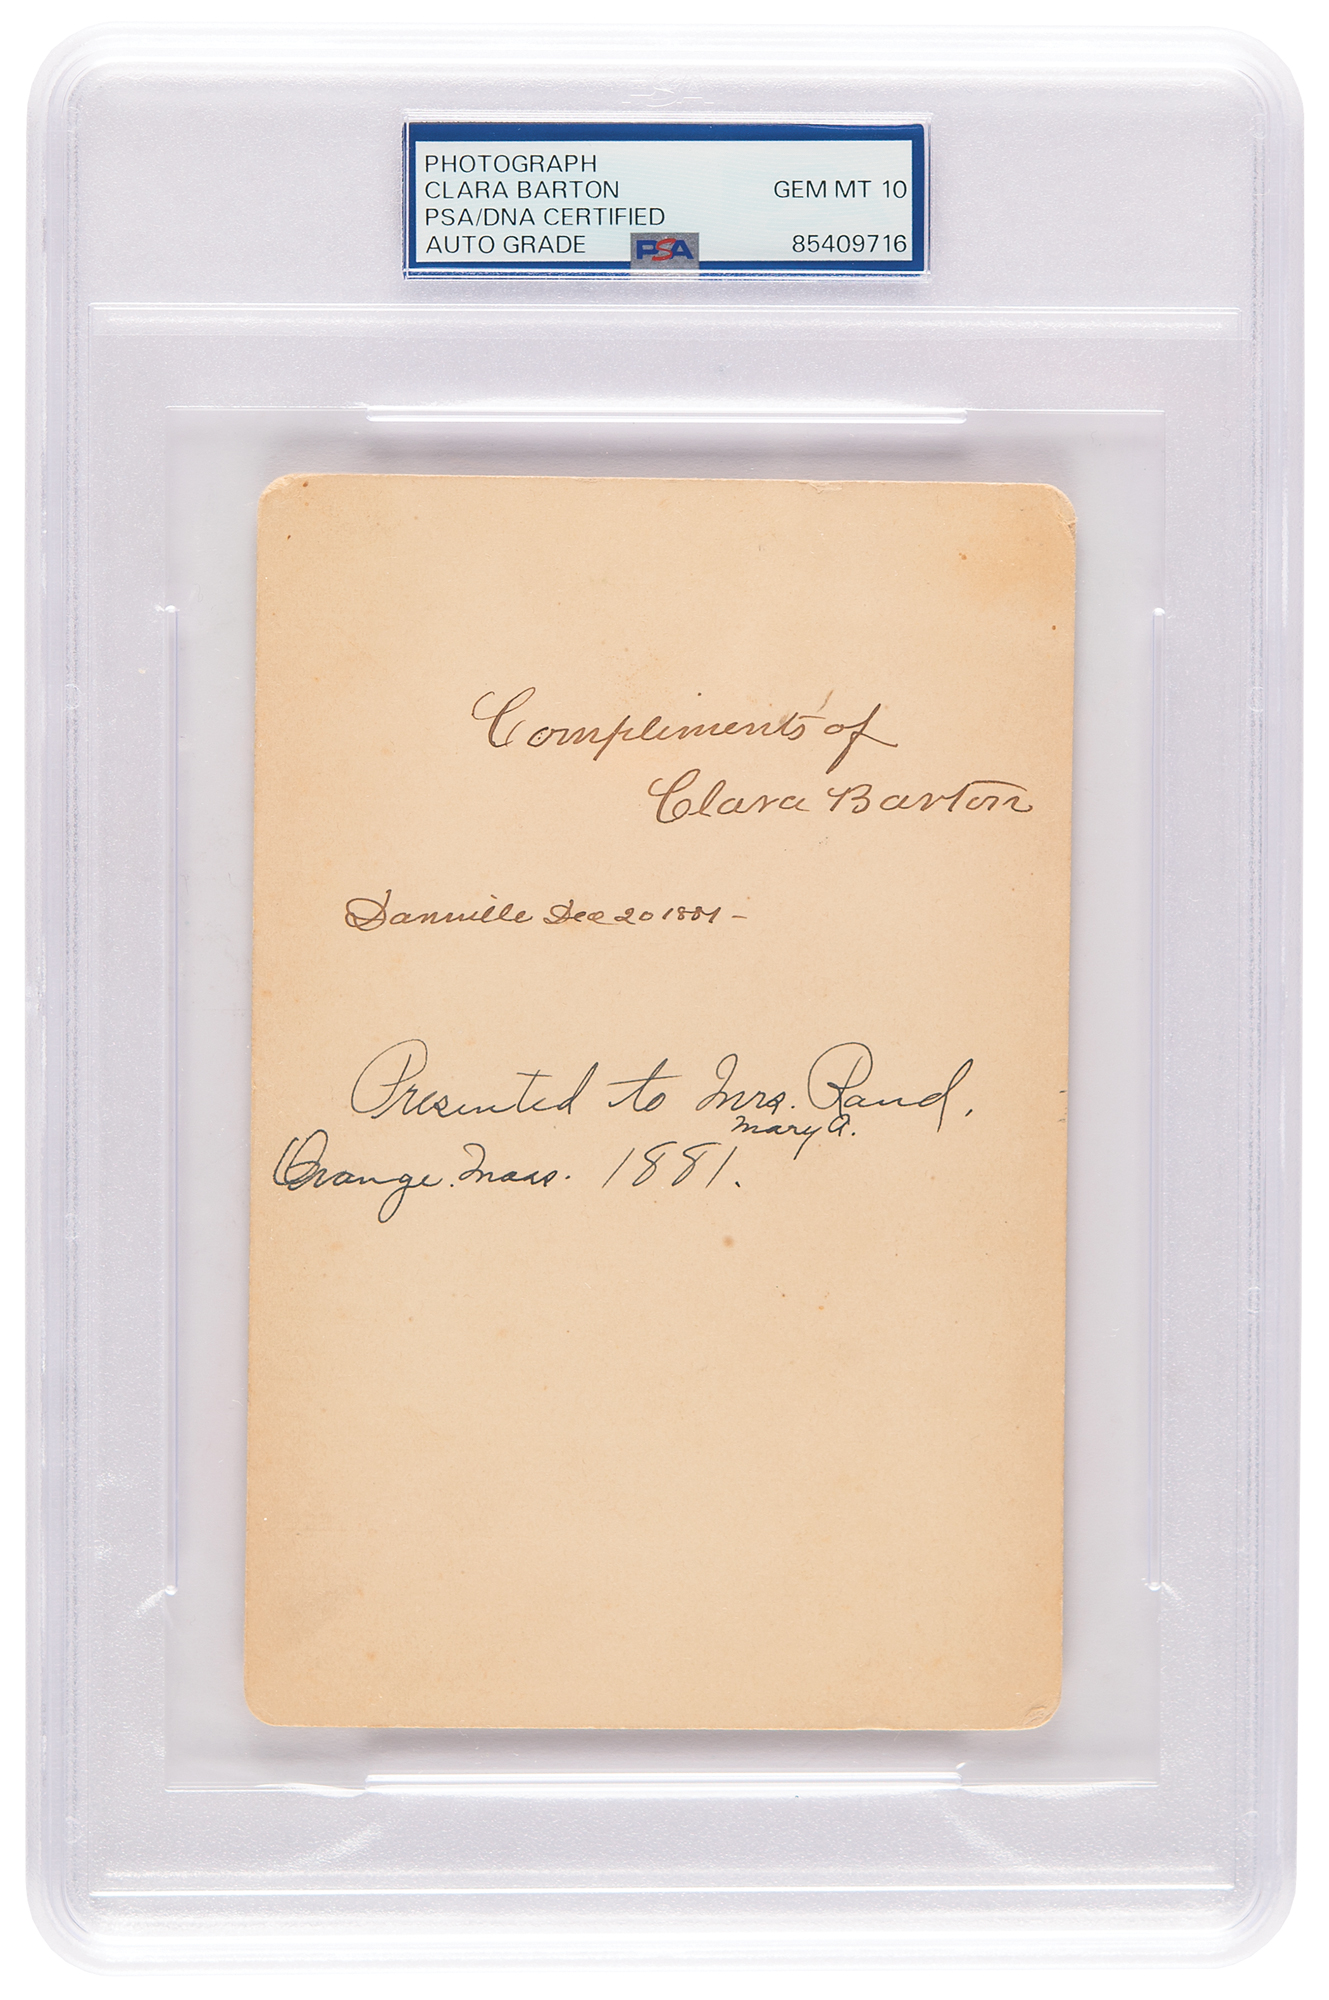 PHOTOGRAPH
CLARA BARTON GEM MT 10
PSA/DNA CERTIFIED
AUTO GRADE PSA 85409716
Compliments of
Clara Barton
Danville Dec 20 1881 -
Presented to Mrs. Rand.
Mary A.
Orange. Mass. 1881.